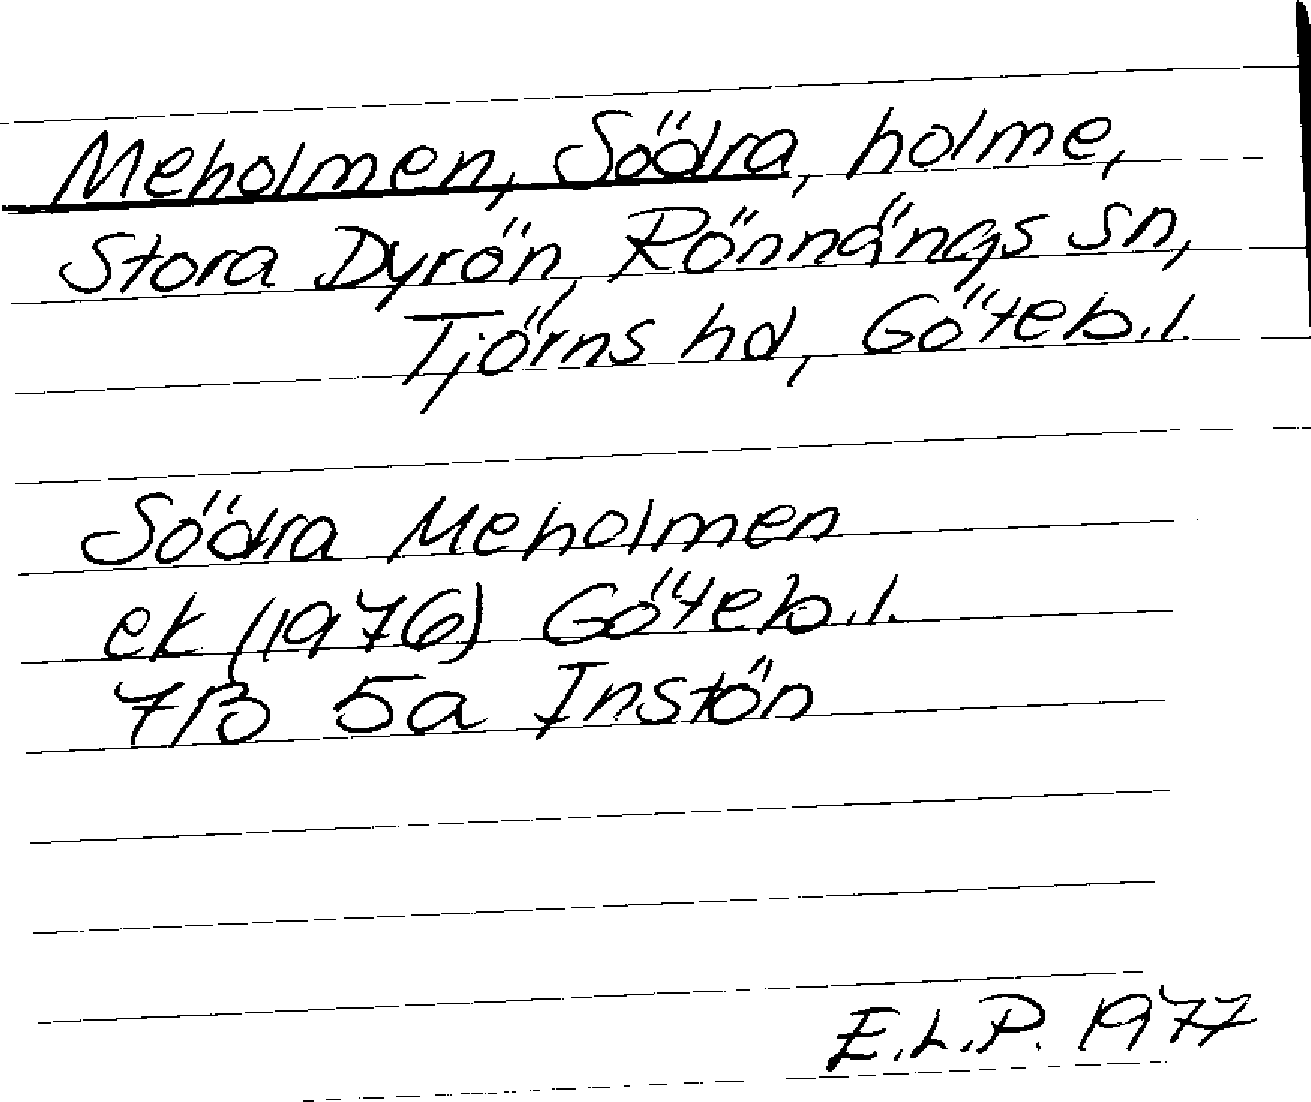 Meholmen, Södra, holme,
Stora Dyrön, Rönnängs sn,
Tjörns hd, Göteb.l.
Södra Meholmen
ek (1976) Göteb.l.
7B 5a Instön
E.L.P. 1977